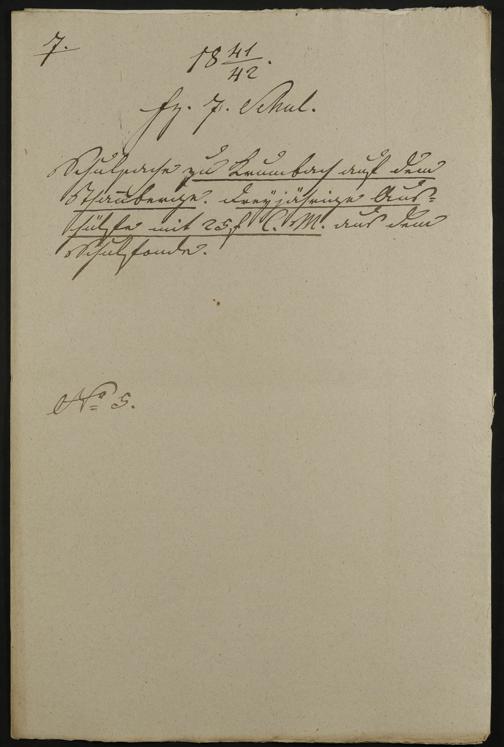 7.
18 41/42.
Fz. 7. Schul.
Schulsache zu Krumbach auf dem
Schauberge. Dreyjährige Aus=
hülfe mit 25 f C. M. aus dem
Schulfonde.
No 5.